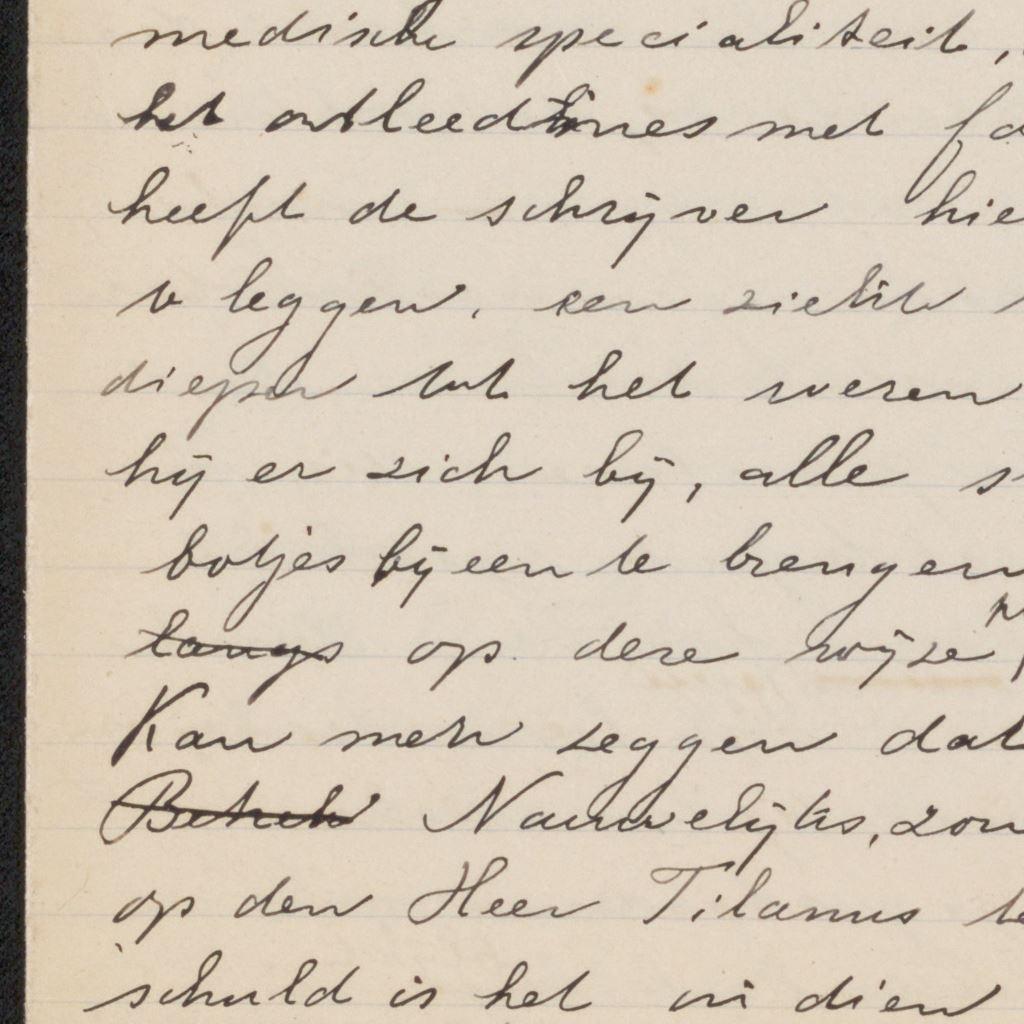 medische specialiteit,
het ontleedmes met
heeft de schrijver hie
te leggen, een ziekte
dieper tot het wezen
hij er zich bij, alle s
botjes bijeen te brengen
langs op deze wijze
Kan men zeggen dat
Nauwelijks, zon
op den Heer Tilanus te
schuld is het in dien